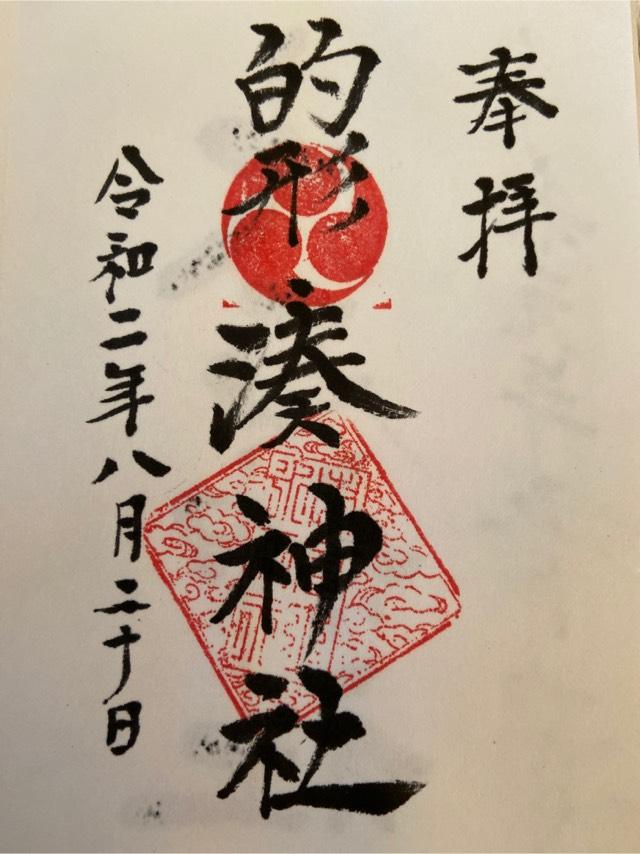 奉拝
的形湊神社
令和二年八月二十日